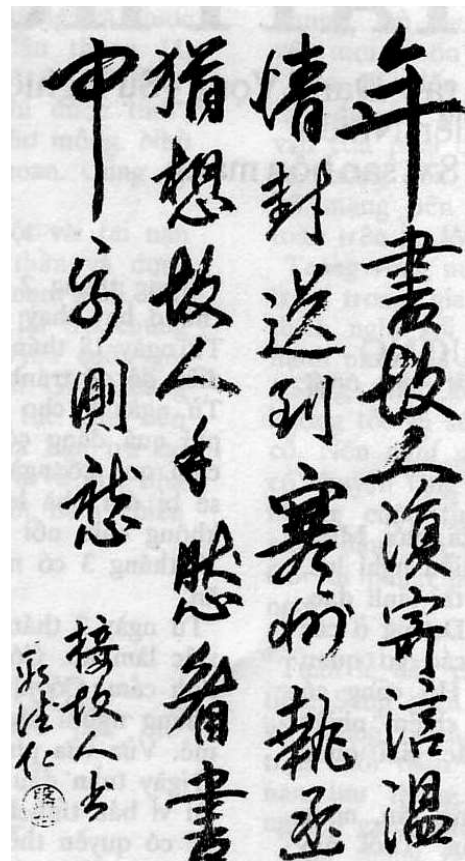 年書故人須寄信溫
情封送到寒州執函
猶想故人手看書
中字則愁
接故人書
仁